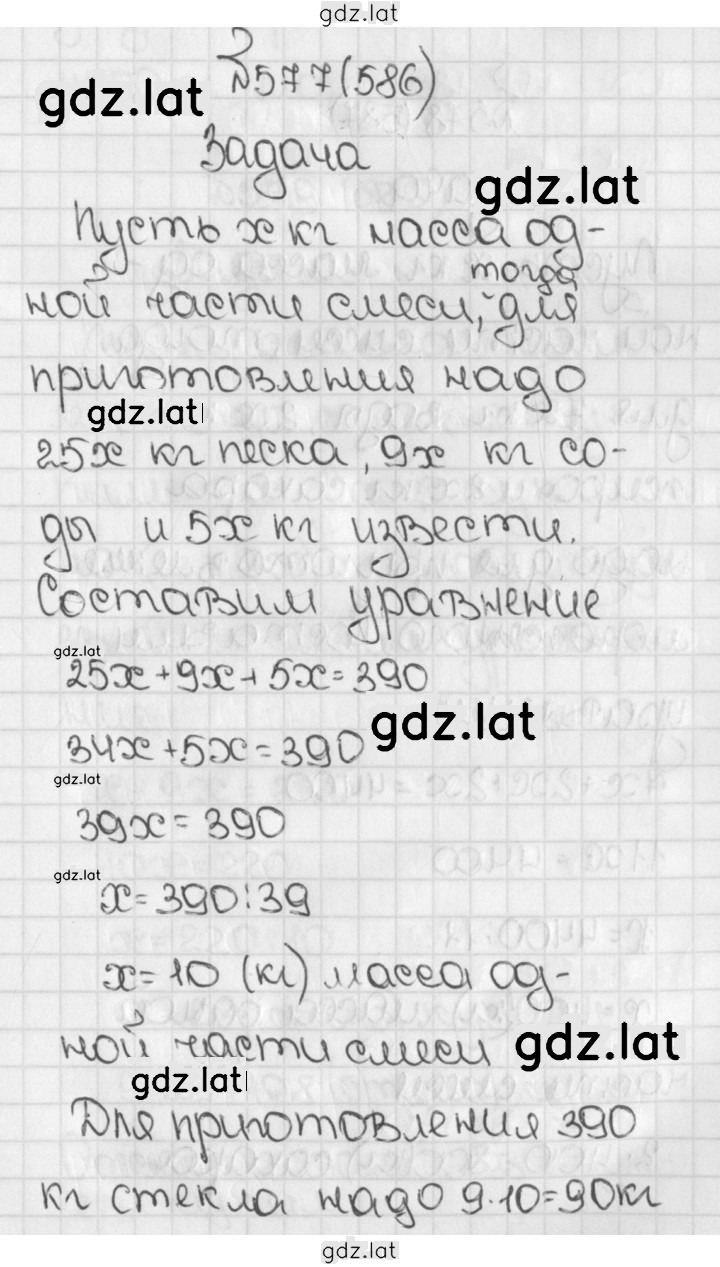 gdz.lat
№577(586)
gdz.lat
Задача
gdz.lat
Пусть x кг масса од-
тогда
ной части смеси, для
приготовления надо
gdz.lat
25x кг песка, 9x кг со-
ды и 5x кг извести.
Составим уравнение
gdz.lat
25x+9x+5x=390
gdz.lat
34x+5x=390
gdz.lat
39x=390
gdz.lat
x=390:39
x=10 (кг) масса од-
ной части смеси
gdz.lat
gdz.lat
Для приготовления 390
кг стекла надо 9·10=90кг
gdz.lat